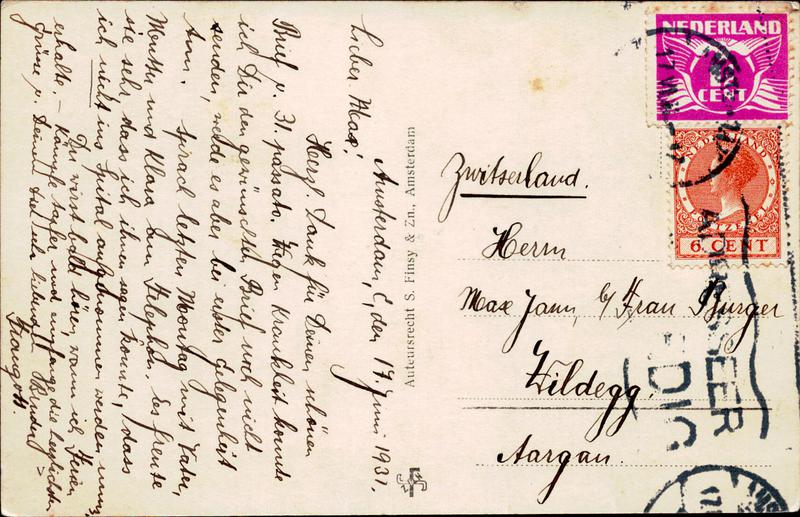 Amsterdam, C, den 17 Juni 1931.
Lieber Max!
Herzl. Dank für Deinen schönen
Brief v. 31. passato. Wegen Krankheit konnte
ich Dir den gewünschten Brief noch nicht
senden, werde es aber bei erster Gelegenheit
tun. Sprach letzten Montag mit Vater,
Mutter und Klara am Telephon. Es freute
sie sehr, dass ich ihnen sagen konnte, dass
ich nicht ins Spital aufgenommen werden muss.
Du wirst bald hören, wann ich Ferien
erhalte. - Kämpfe tapfer und empfange die herzlichsten
Grüsse v. Deinem Dich liebenden Bruder
Auteursrecht S. Finsy & Zn., Amsterdam
NEDERLAND
CENT
NEDERLAND
6 CENT
Zwitserland.
Herrn
Max Jann, c/o Frau Burger
Wildegg.
Aargau.